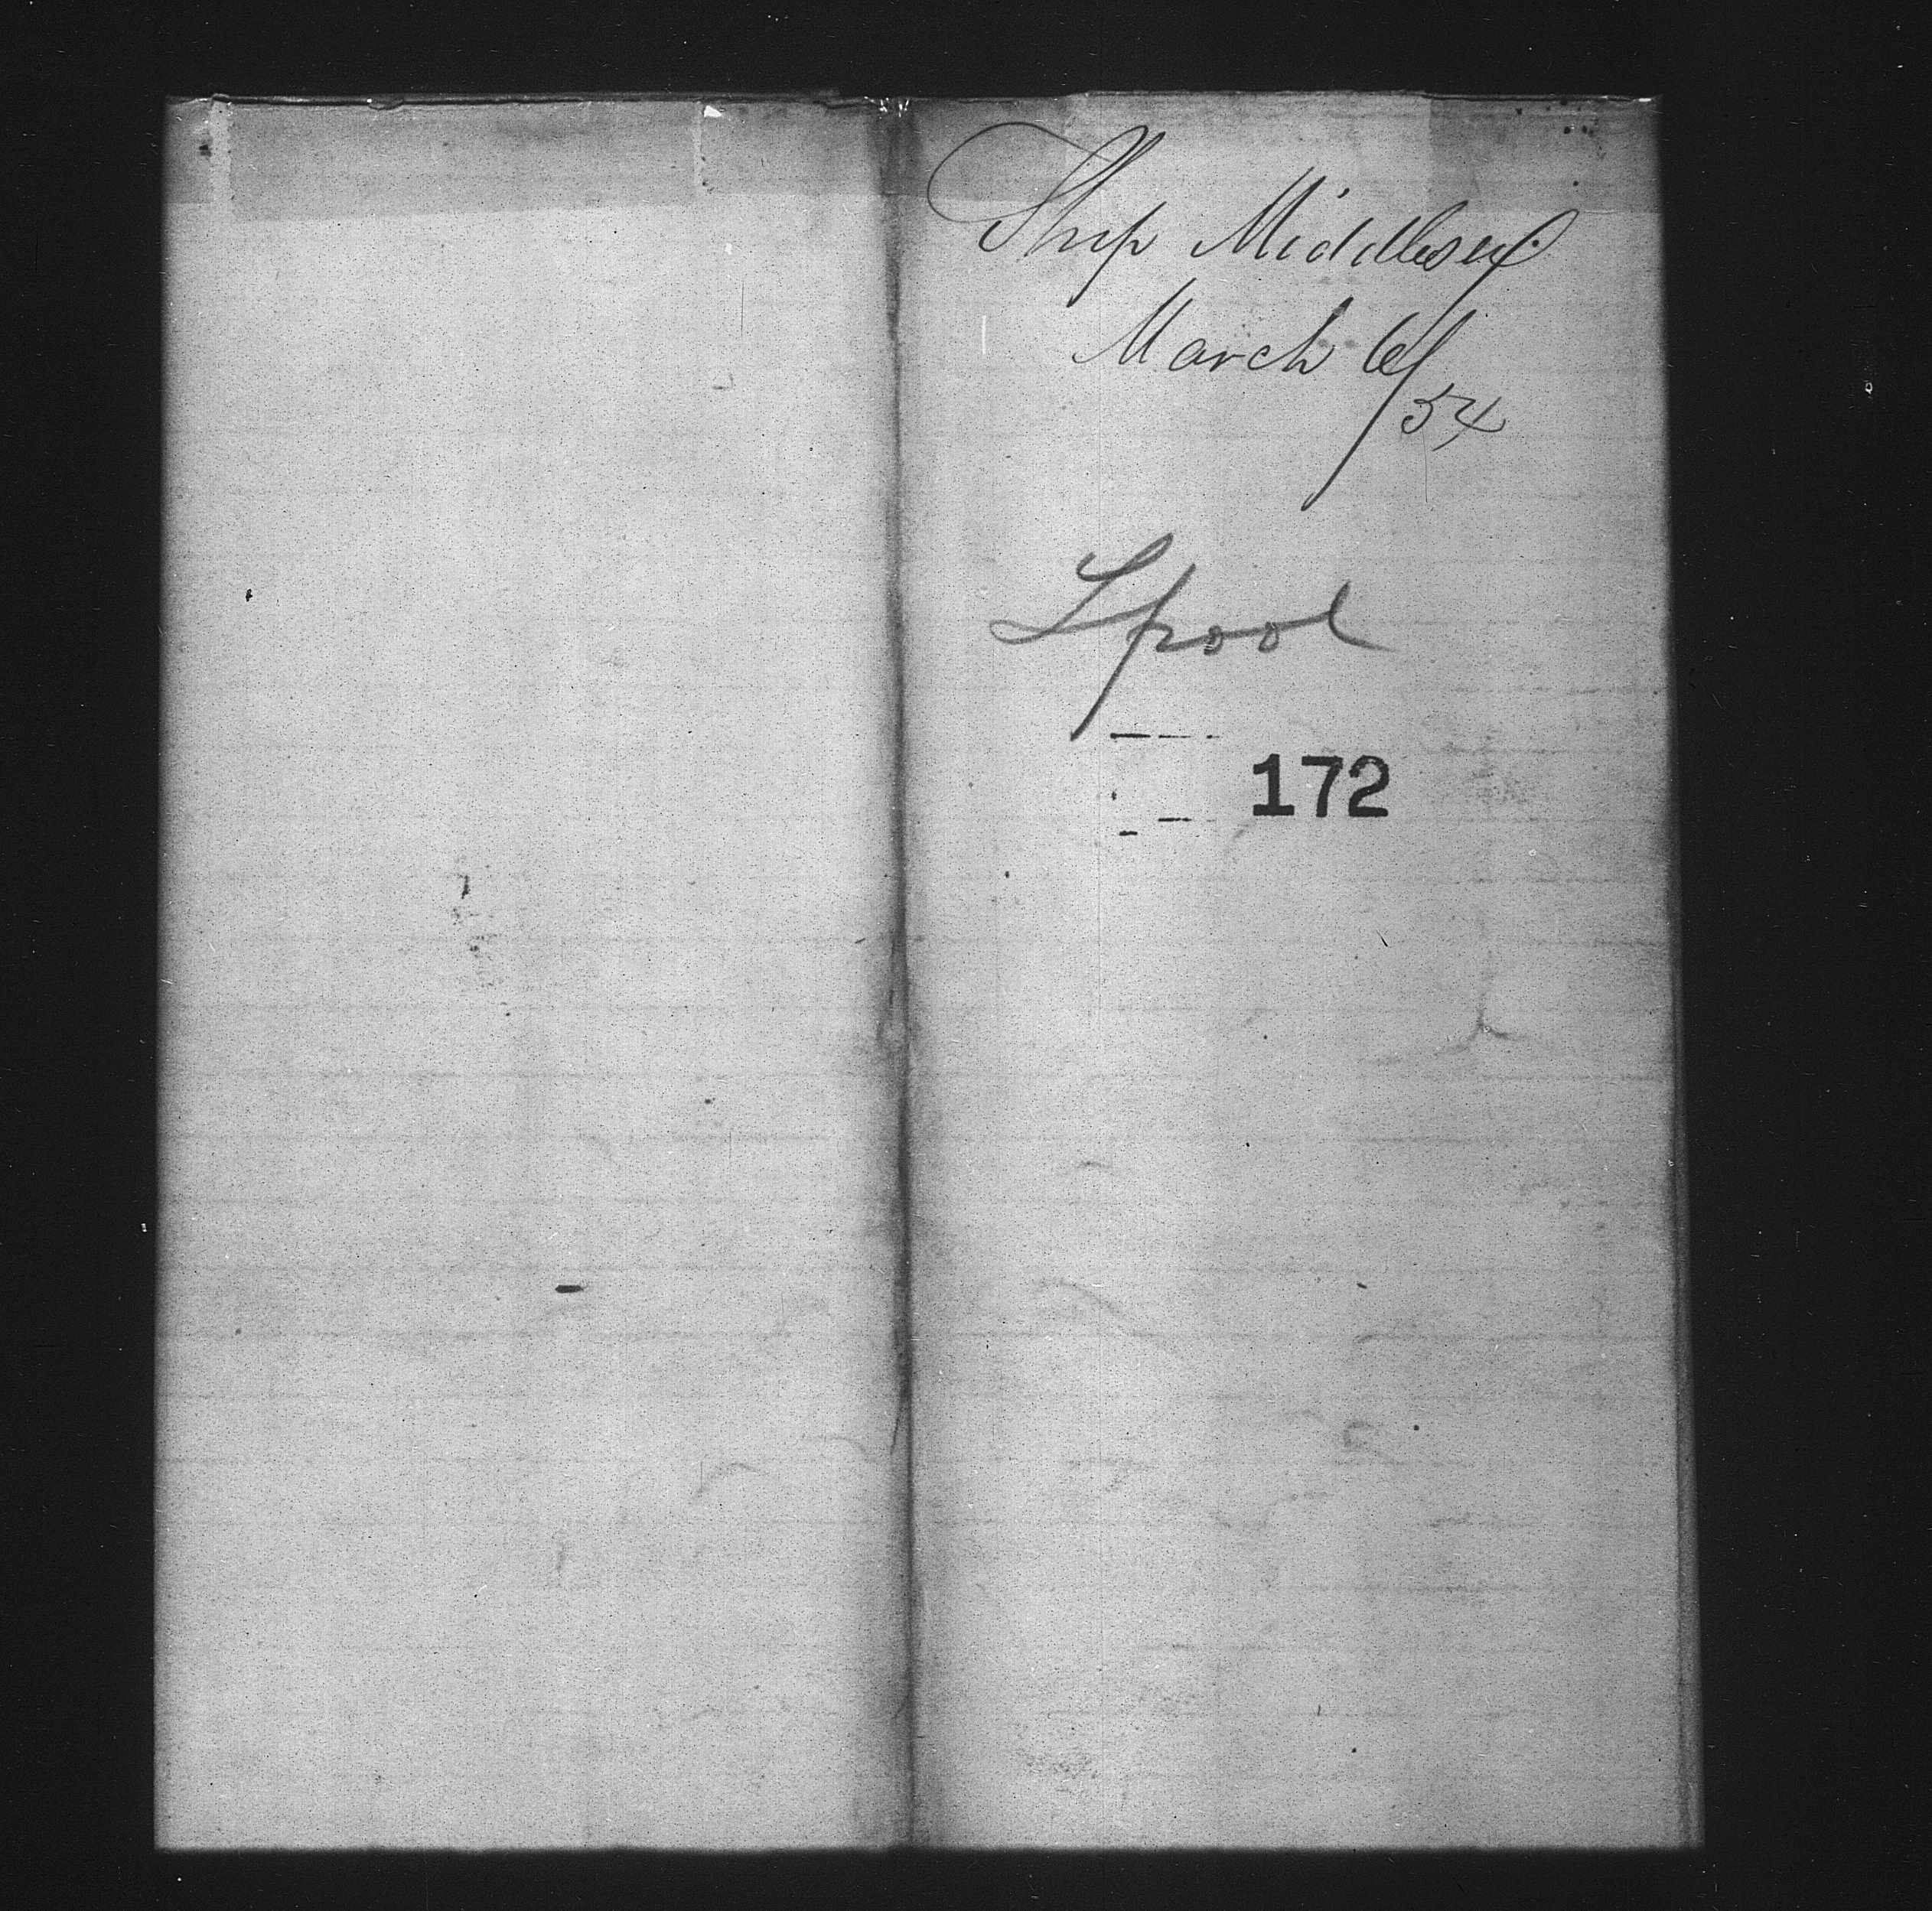 Ship Middlesex
March 6/
54
Lpool
172